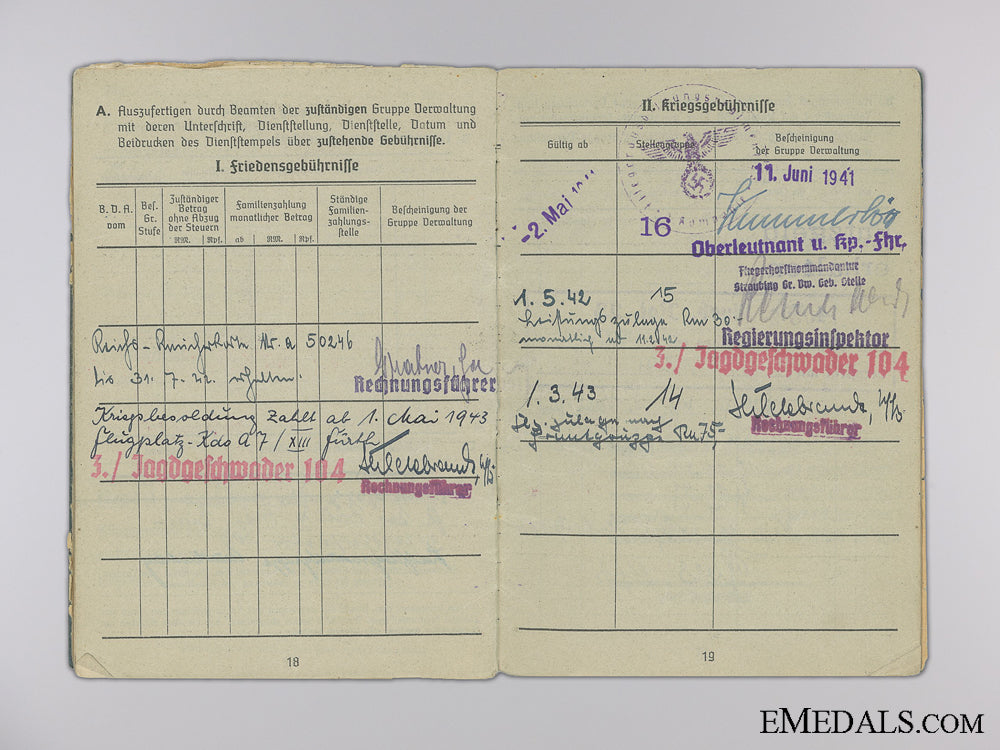 A. Auszufertigen durch Beamten der zuständigen Gruppe Verwaltung
mit deren Unterschrift, Dienststellung, Dienststelle, Datum und
Beidrucken des Dienststempels über zustehende Gebührnisse.
I. Friedensgebührnisse
B. D. A. vom
Bes. Gr. Stufe
Zuständiger Betrag ohne Abzug der Steuern
RM. Rpf.
Familienzahlung monatlicher Betrag
ab RM. Rpf.
Ständige Familien-zahlungs-stelle
Bescheinigung der Gruppe Verwaltung
Reichs- Nr. a 50246
bis 31. 7. 42. erhalten.
Rechnungsführer
Kriegsbesoldung zahlt ab 1. Mai 1943
Flugplatz-Kdo A 7/XIII Fürth
3./ Jagdgeschwader 104
Rechnungsführer
18
II. Kriegsgebührnisse
Gültig ab
Stellengruppe
Bescheinigung der Gruppe Verwaltung
-2. Mai
16
11. Juni 1941
Oberleutnant u. Kp.-Fhr.
Fliegerhorstkommandantur
Straubing Gr. Vw. Geb. Stelle
1. 5. 42 15
Leistungszulage RM 30.-
monatlich ab 11.2.42
Regierungsinspektor
3./ Jagdgeschwader 104
1. 3. 43 14
Rechnungsführer
19
EMEDALS.COM